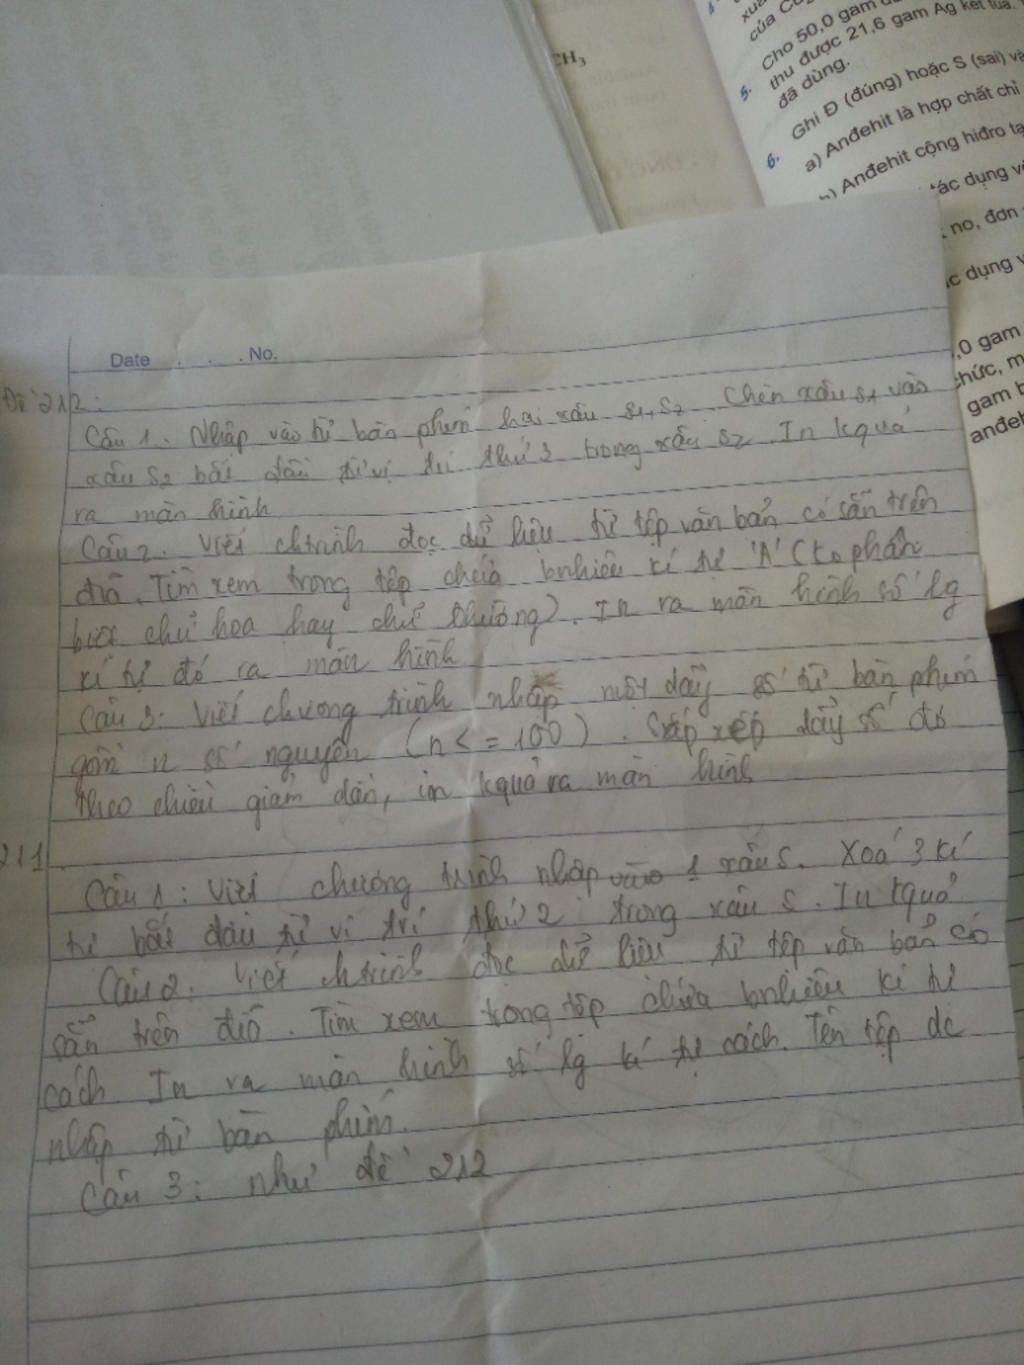 CH₃
xuấ
của Cu
Cho 50,0 gam du
thu được 21,6 gam Ag kết tủa.
đã dùng.
5.
Ghi Đ (đúng) hoặc S (sai) và
6.
a) Anđehit là hợp chất chỉ
b) Anđehit cộng hiđro tạ
tác dụng v
no, đơn
c dụng v
,0 gam
chức, m
gam b
anđeh
Date . . . No.
Đề 212:
Câu 1. Nhập vào từ bàn phím hai xâu S1, S2. Chèn xâu S1 vào
xâu S2 bắt đầu từ vị trí thứ 3 trong xâu S2. In kquả
ra màn hình
Câu 2. Viết chtrình đọc dữ liệu từ tệp văn bản có sẵn trên
đĩa. Tìm xem trong tệp chứa bnhiêu kí tự 'A' (ko phân
biệt chữ hoa hay chữ thường). In ra màn hình số lg
kí tự đó ra màn hình
Câu 3: Viết chương trình nhập một dãy số từ bàn phím
gồm n số nguyên (n <= 100). Sắp xếp dãy số đó
theo chiều giảm dần, in kquả ra màn hình
211
Câu 1: Viết chương trình nhập vào 1 xâu S. Xoá 3 kí
tự bắt đầu từ vị trí thứ 2 trong xâu S. In kquả
Câu 2: Viết chtrình đọc dữ liệu từ tệp văn bản có
sẵn trên đĩa. Tìm xem trong tệp chứa bnhiêu kí tự
cách. In ra màn hình số lg kí tự cách. Tên tệp dc
nhập từ bàn phím.
Câu 3: như đề 212